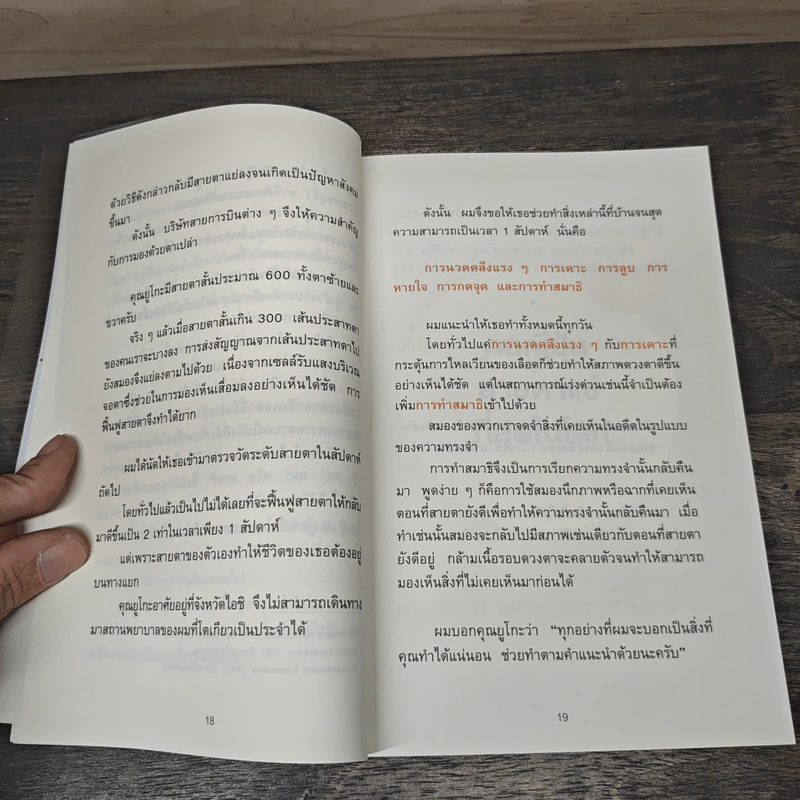 ด้วยวิธีดังกล่าวกลับมีสายตาแย่ลงจนเกิดเป็นปัญหาสังคม
ขึ้นมา
ดังนั้น บริษัทสายการบินต่าง ๆ จึงให้ความสำคัญ
กับการมองด้วยตาเปล่า
คุณยูโกะมีสายตาสั้นประมาณ 600 ทั้งตาซ้ายและ
ขวาครับ
จริง ๆ แล้วเมื่อสายตาสั้นเกิน 300 เส้นประสาทตา
ของคนเราจะบางลง การส่งสัญญาณจากเส้นประสาทตาไป
ยังสมองจึงแย่ลงตามไปด้วย เนื่องจากเซลล์รับแสงบริเวณ
จอตาซึ่งช่วยในการมองเห็นเสื่อมลงอย่างเห็นได้ชัด การ
ฟื้นฟูสายตาจึงทำได้ยาก
ผมได้นัดให้เธอเข้ามาตรวจวัดระดับสายตาในสัปดาห์
ถัดไป
โดยทั่วไปแล้วเป็นไปไม่ได้เลยที่จะฟื้นฟูสายตาให้กลับ
มาดีขึ้นเป็น 2 เท่าในเวลาเพียง 1 สัปดาห์
แต่เพราะสายตาของตัวเองทำให้ชีวิตของเธอต้องอยู่
บนทางแยก
คุณยูโกะอาศัยอยู่ที่จังหวัดไอชิ จึงไม่สามารถเดินทาง
มาสถานพยาบาลของผมที่โตเกียวเป็นประจำได้
18
ดังนั้น ผมจึงขอให้เธอช่วยทำสิ่งเหล่านี้ที่บ้านจนสุด
ความสามารถเป็นเวลา 1 สัปดาห์ นั่นคือ
การนวดคลึงแรง ๆ การเคาะ การลูบ การ
หายใจ การกดจุด และการทำสมาธิ
ผมแนะนำให้เธอทำทั้งหมดนี้ทุกวัน
โดยทั่วไปแค่การนวดคลึงแรง ๆ กับการเคาะที่
กระตุ้นการไหลเวียนของเลือดก็ช่วยทำให้สภาพดวงตาดีขึ้น
อย่างเห็นได้ชัด แต่ในสถานการณ์เร่งด่วนเช่นนี้จำเป็นต้อง
เพิ่มการทำสมาธิเข้าไปด้วย
สมองของพวกเราจดจำสิ่งที่เคยเห็นในอดีตในรูปแบบ
ของความทรงจำ
การทำสมาธิจึงเป็นการเรียกความทรงจำนั้นกลับคืน
มา พูดง่าย ๆ ก็คือการใช้สมองนึกภาพหรือฉากที่เคยเห็น
ตอนที่สายตายังดีเพื่อทำให้ความทรงจำนั้นกลับคืนมา เมื่อ
ทำเช่นนั้นสมองจะกลับไปมีสภาพเช่นเดียวกับตอนที่สายตา
ยังดีอยู่ กล้ามเนื้อรอบดวงตาจะคลายตัวจนทำให้สามารถ
มองเห็นสิ่งที่ไม่เคยเห็นมาก่อนได้
ผมบอกคุณยูโกะว่า "ทุกอย่างที่ผมจะบอกเป็นสิ่งที่
คุณทำได้แน่นอน ช่วยทำตามคำแนะนำด้วยนะครับ"
19